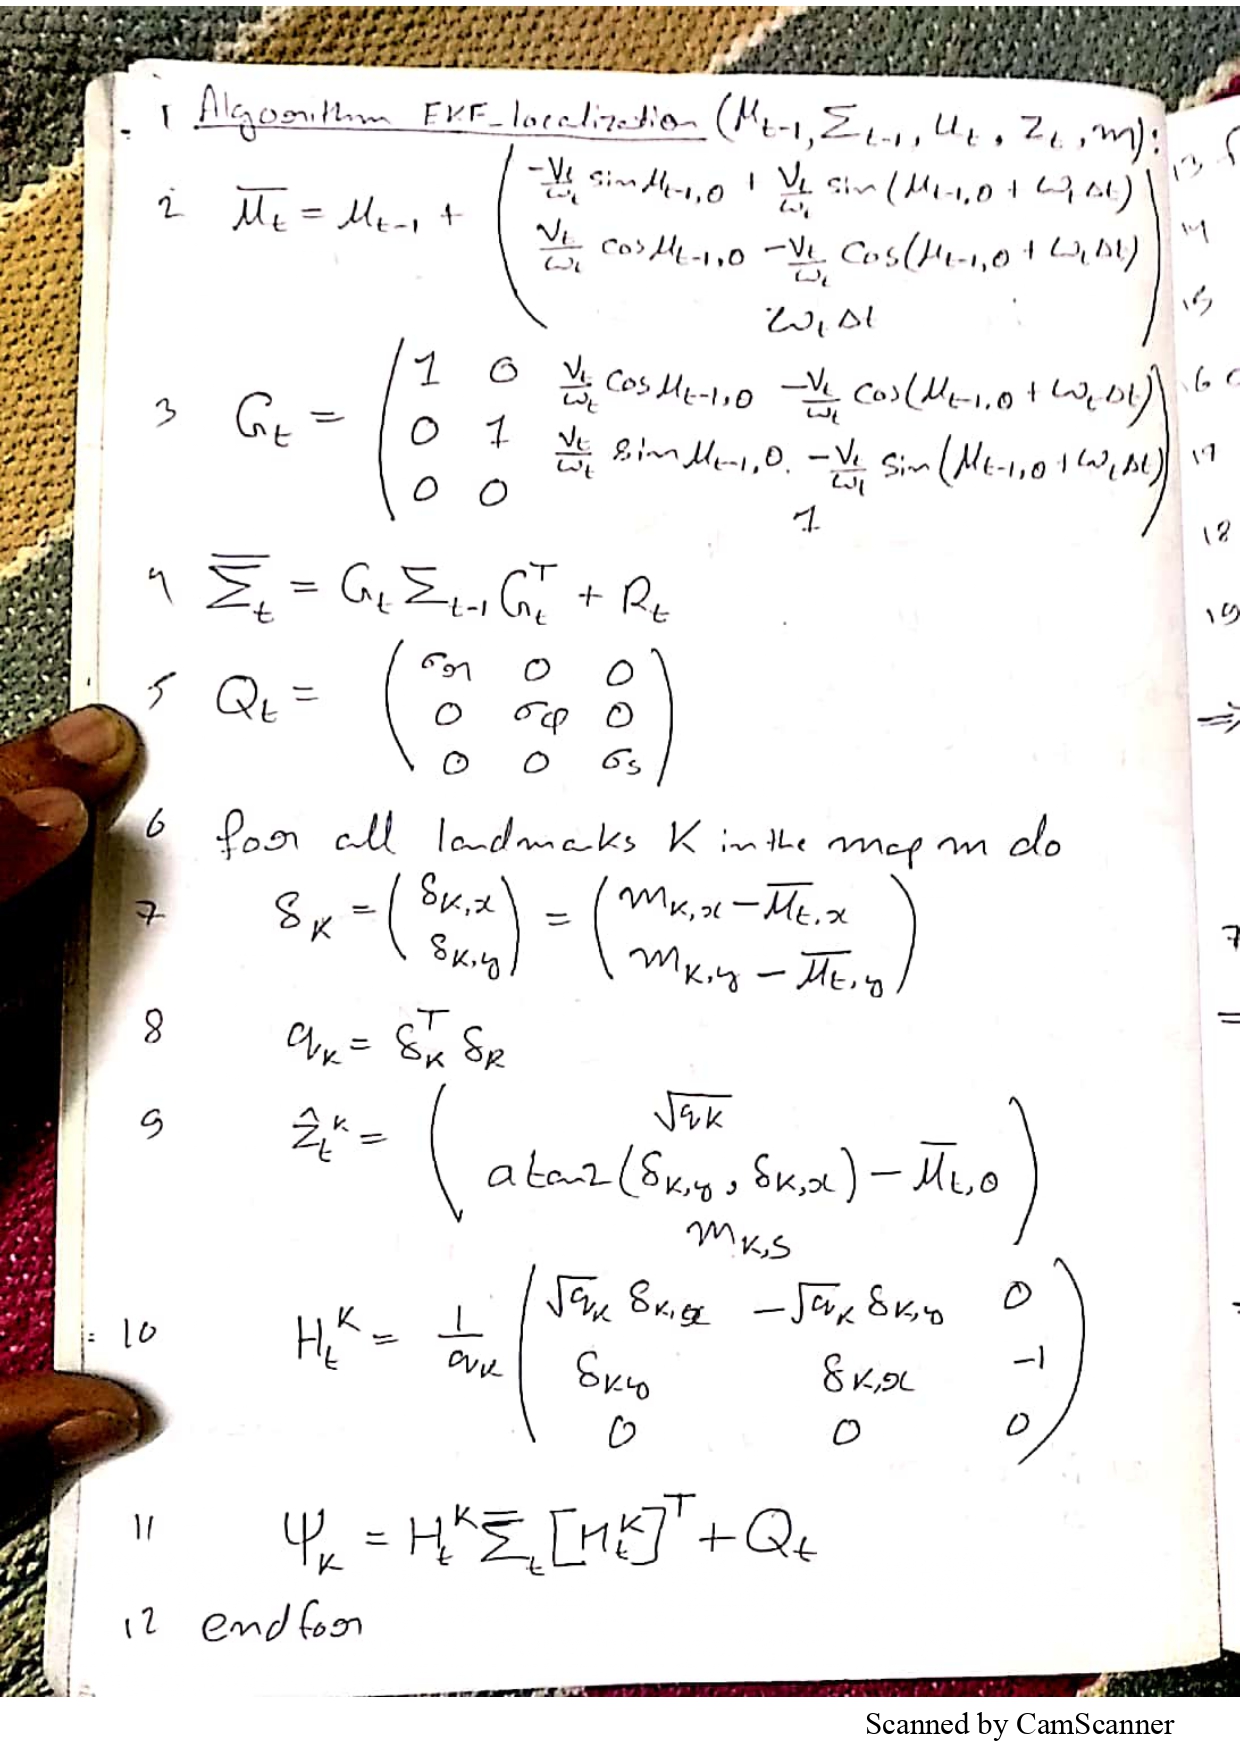 1 Algorithm EKF_localization (μ_{t-1}, Σ_{t-1}, u_t, z_t, m):
2 μ̄_t = μ_{t-1} + ( -v_t/ω_t sin μ_{t-1,θ} + v_t/ω_t sin(μ_{t-1,θ} + ω_t Δt)
v_t/ω_t cos μ_{t-1,θ} - v_t/ω_t cos(μ_{t-1,θ} + ω_t Δt)
ω_t Δt )
3 G_t = ( 1 0 v_t/ω_t cos μ_{t-1,θ} - v_t/ω_t cos(μ_{t-1,θ} + ω_t Δt)
0 1 v_t/ω_t sin μ_{t-1,θ} - v_t/ω_t sin(μ_{t-1,θ} + ω_t Δt)
0 0 1 )
4 Σ̄_t = G_t Σ_{t-1} G_t^T + R_t
5 Q_t = ( σ_r 0 0
0 σ_φ 0
0 0 σ_s )
6 for all landmaks K in the map m do
7 δ_K = ( δ_{K,x} δ_{K,y} ) = ( m_{K,x} - μ̄_{t,x}
m_{K,y} - μ̄_{t,y} )
8 q_K = δ_K^T δ_K
9 ẑ_t^K = ( √q_K
atan2(δ_{K,y}, δ_{K,x}) - μ̄_{t,θ}
m_{K,s} )
10 H_t^K = 1/q_K ( √q_K δ_{K,x} -√q_K δ_{K,y} 0
δ_{K,y} δ_{K,x} -1
0 0 0 )
11 Ψ_K = H_t^K Σ̄_t [H_t^K]^T + Q_t
12 endfor
13
14
15
16
17
18
19
Scanned by CamScanner